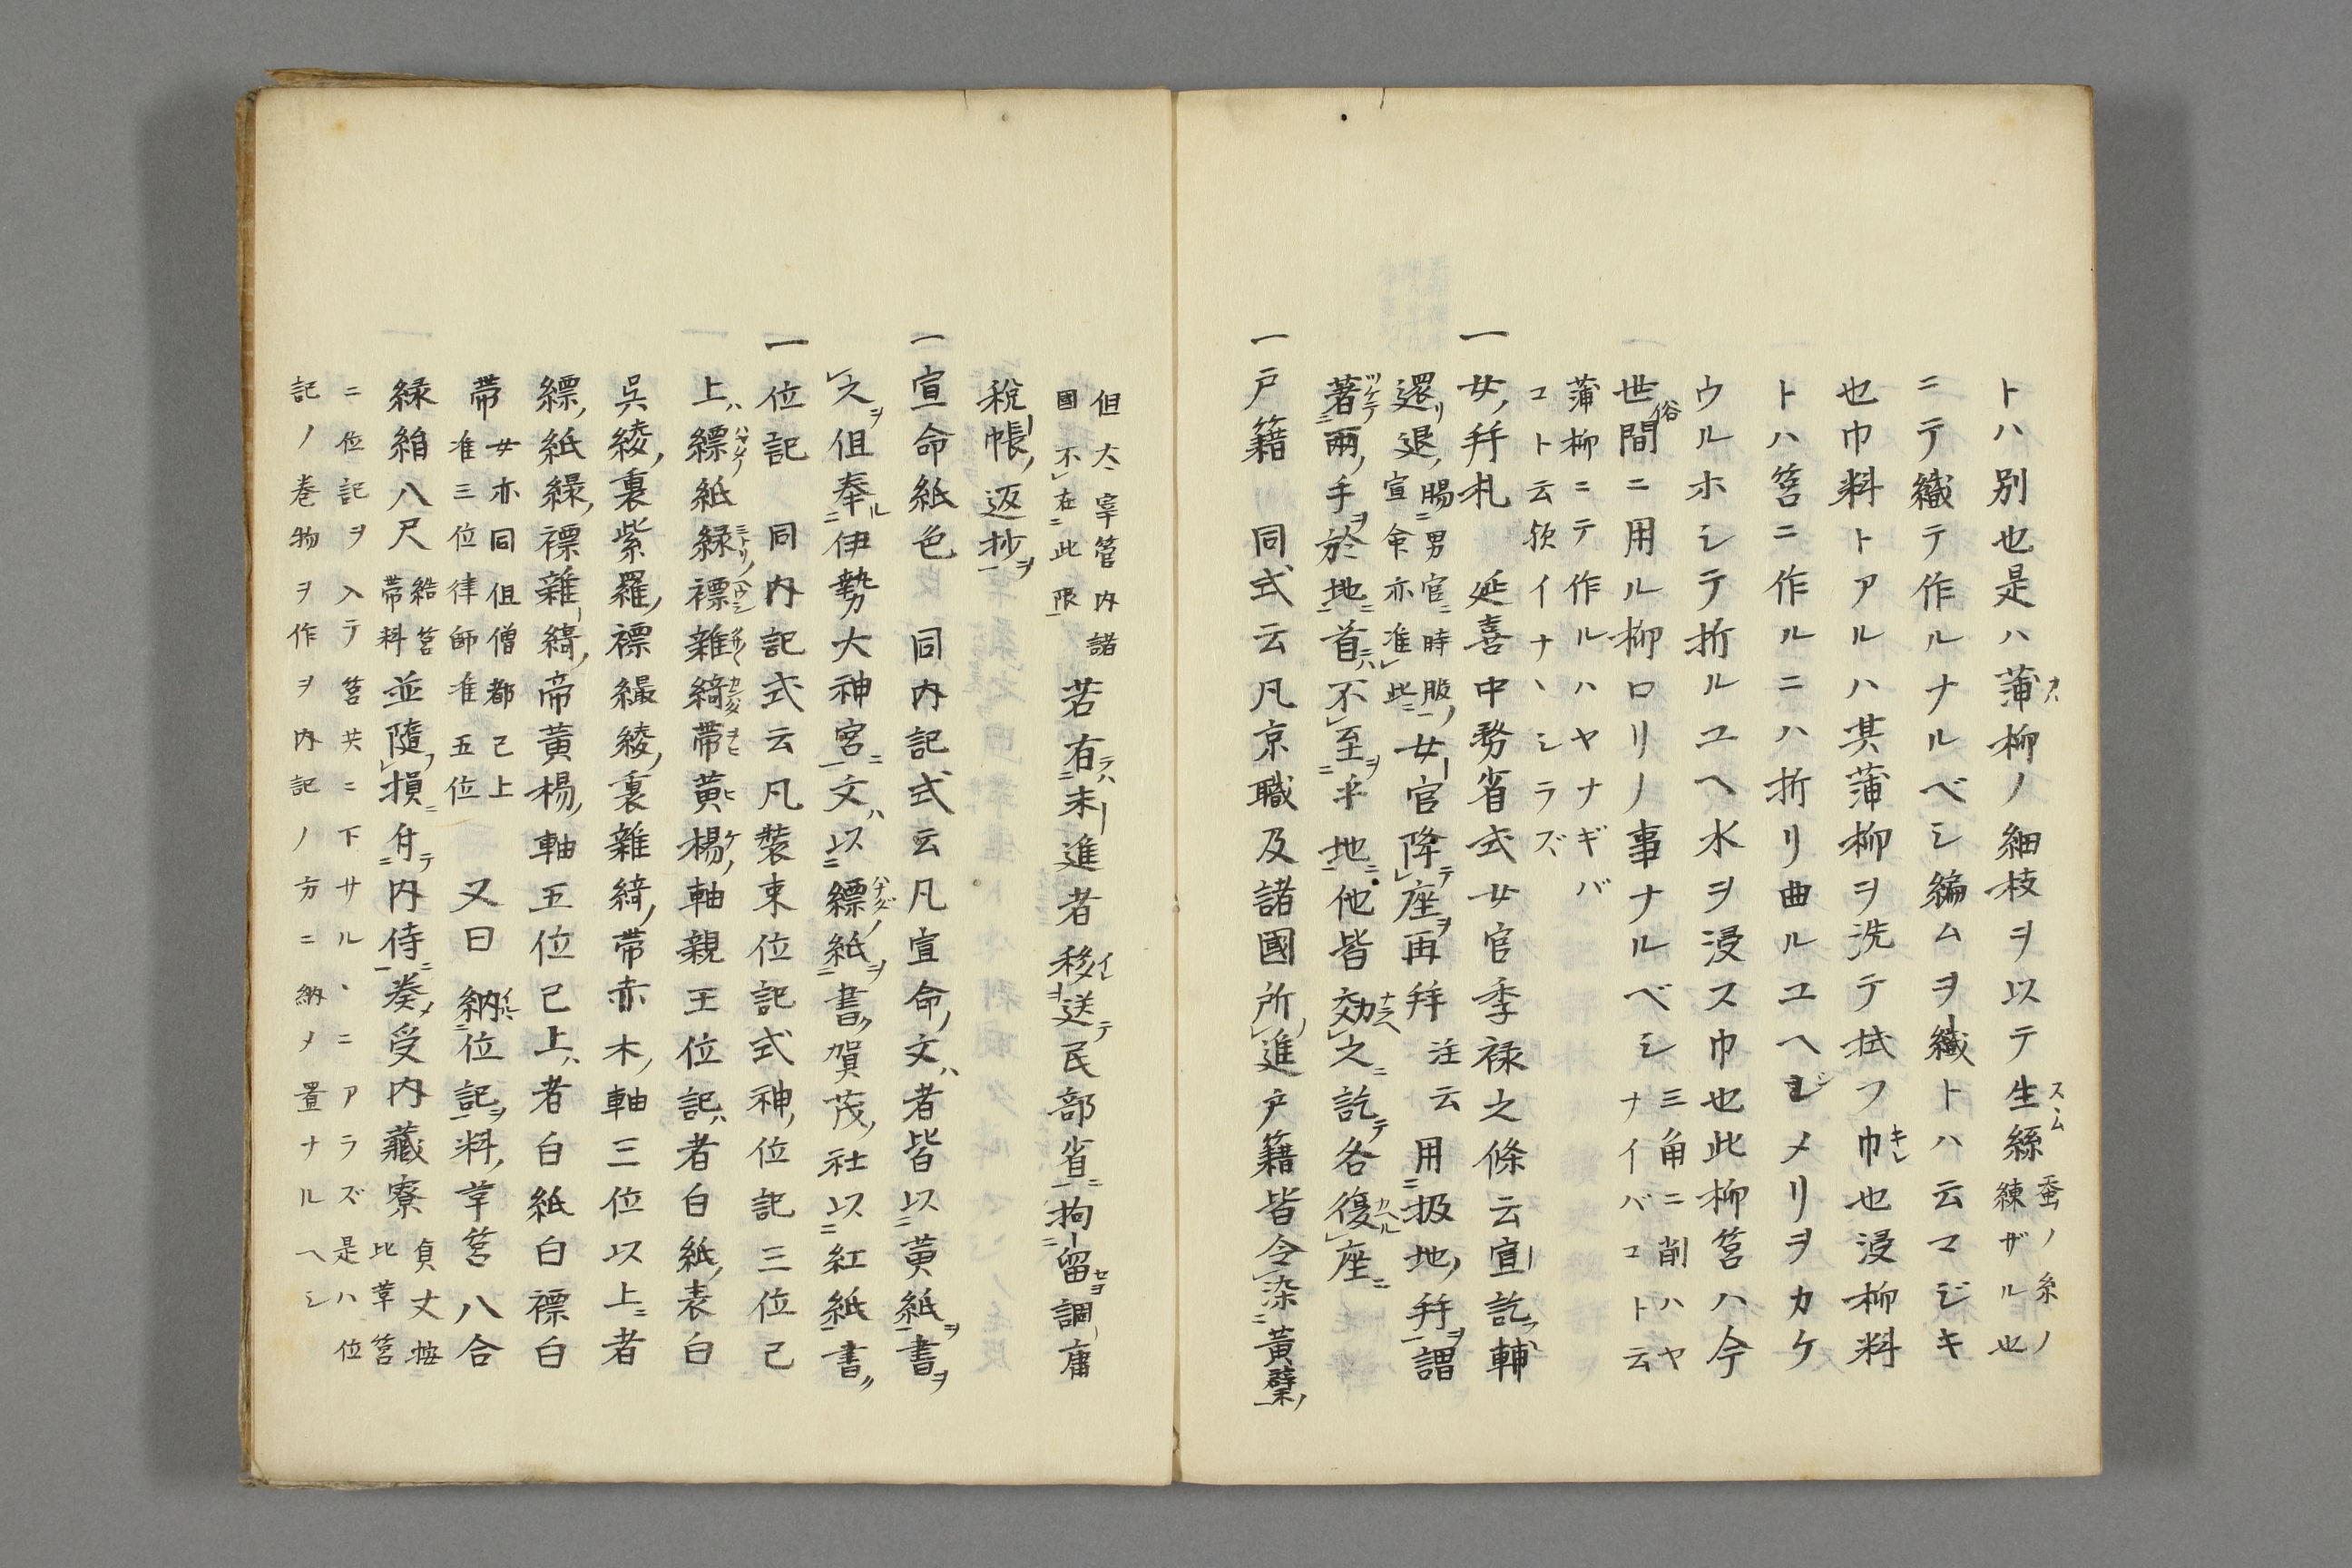 トハ別也是ハ蒲柳ノ細枝ヲ以テ生絲蚕ノ糸ノ練ザル也
ニテ織テ作ルナルベシ編ムヲ織トハ云マジキ
也巾料トアルハ其蒲柳ヲ洗テ拭フ巾也浸柳料
トハ筥ニ作ルニハ折リ曲ルユヘヒジメリヲカケ
ウルホシテ折ルユヘ水ヲ浸ス巾也此柳筥ハ今
世間俗ニ用ル柳ロリノ事ナルベシ三角ニ削ハヤナイバコト云
蒲柳ニテ作ルハヤナギバ
コト云欤イナヽシラズ
一女拜札 延喜中務省式女官季禄之條云宣訖輔
還退賜男官時服宣命亦准此女官降座再拜注云用扱地拜謂
著兩手於地首不至乎地他皆効之訖各復座
一戸籍 同式云凡京職及諸國所進戸籍皆令染黄蘗
但大宰管内諸國不在此限若有未進者移送民部省拘留調庸
税帳返抄
一宣命紙色 同内記式云凡宣命文者皆以黄紙書
之但奉伊勢大神宮文以縹紙書賀茂社以紅紙書
一位記 同内記式云凡裝束位記式神位記三位已
上縹紙緑褾雜綺帶黄楊軸親王位記者白紙表白
呉綾裏紫羅褾纈綾裏雜綺帶赤木軸三位以上者
縹紙緑褾雜綺帝黄楊軸五位已上者白紙白褾白
帶女亦同但僧都已上准三位律師准五位 又曰納位記料葦筥八合
緑絹八尺結筥帶料並隨損付内侍奏受内藏寮貞丈按比葦筥
ニ位記ヲ入テ筥共ニ下サルヽニアラズ是ハ位
記ノ巻物ヲ作ヲ内記ノ方ニ納メ置ナルヘシ